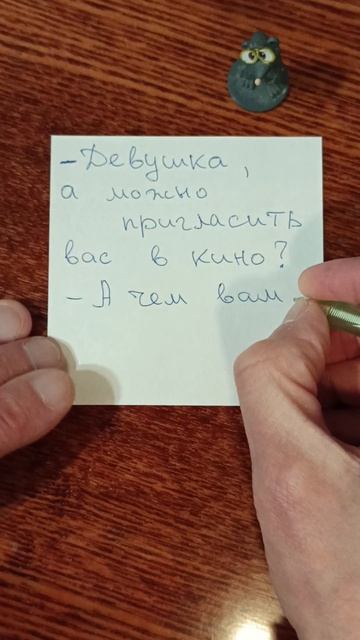 - Девушка,
а можно
пригласить
вас в кино?
- А чем вам